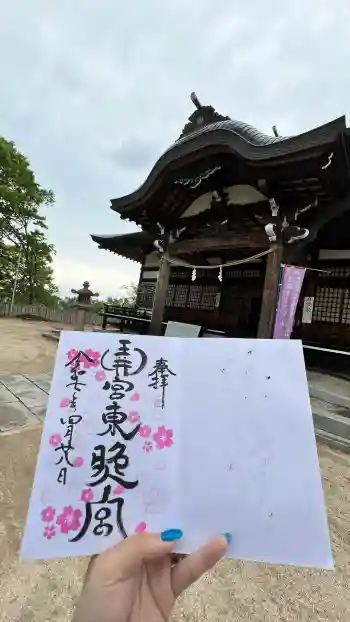 奉拝
玉井宮東照宮
令和七年四月廿日